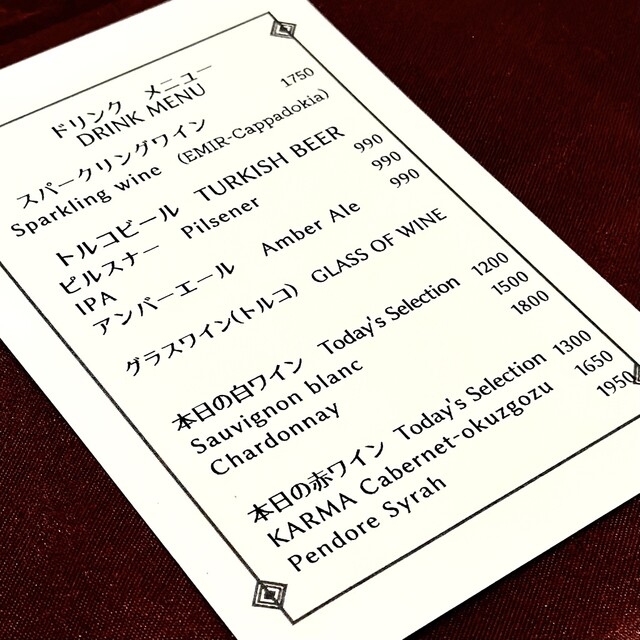 ドリンク メニュー
DRINK MENU
スパークリングワイン 1750
Sparkling wine (EMIR-Cappadokia)
トルコビール TURKISH BEER
ピルスナー Pilsener 990
IPA 990
アンバーエール Amber Ale 990
グラスワイン(トルコ) GLASS OF WINE
本日の白ワイン Today's Selection 1200
Sauvignon blanc 1500
Chardonnay 1800
本日の赤ワイン Today's Selection 1300
KARMA Cabernet-okuzgozu 1650
Pendore Syrah 1950